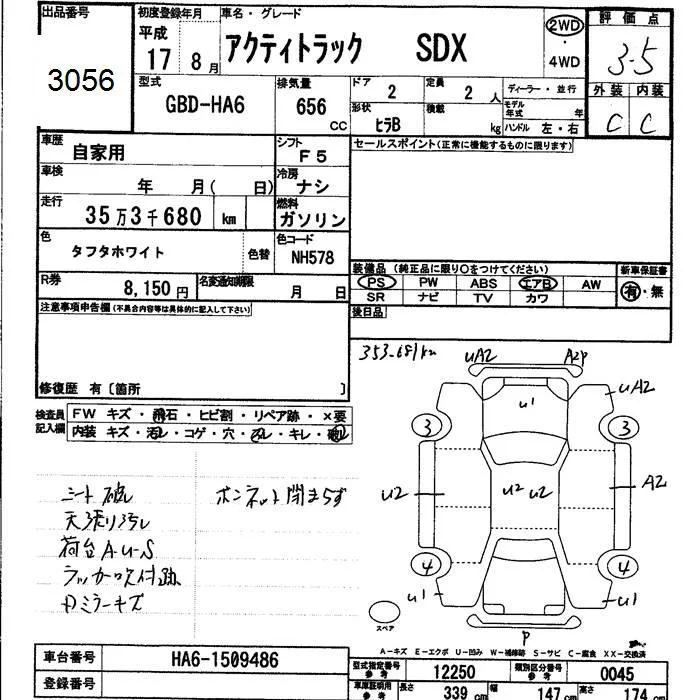 出品番号 初度登録年月 車名・グレード 評価点
3056 平成 17 8月 アクティトラック SDX 2WD・4WD 3.5
型式 排気量 ドア 定員 ディーラー・並行 外装 内装
GBD-HA6 656 CC 2 2人 モデル年式 年 C C
形状 積載
ヒラB kg ハンドル 左・右
車歴 シフト セールスポイント(正常に機能するものに限ります)
自家用 F5
車検 冷房
年 月( 日) ナシ
走行 燃料
35万3千680 km ガソリン
色 色替 色コード
タフタホワイト NH578
装備品 (純正品に限り○をつけてください) 新車保証書
R券 名変通知期限 PS PW ABS エアB AW 有・無
8,150円 月 日 SR ナビ TV カワ
注意事項申告欄(不具合内容等は具体的に記入して下さい) 後日品
修復歴 有〔箇所 〕
353-681km
UA2 A2P
U1 UA2
3 3
U2 U2 U2 A2
4 4
U1 U1
P
スペア
検査員記入欄 FW キズ・飛石・ヒビ割・リペア跡・×要
内装 キズ・汚レ・コゲ・穴・スレ・キレ・破レ
シート破レ ボンネット閉まらず
天張り汚レ
荷台A-U-S
ラッカー吹付跡
Rミラーキズ
A-キズ E-エクボ U-凹み W-補修跡 S-サビ C-腐食 XX-交換済
車台番号 HA6-1509486
型式指定番号 参考 12250 類別区分番号 参考 0045
登録番号
車庫証明用 参考 長さ 339 cm 幅 147 cm 高さ 174 cm